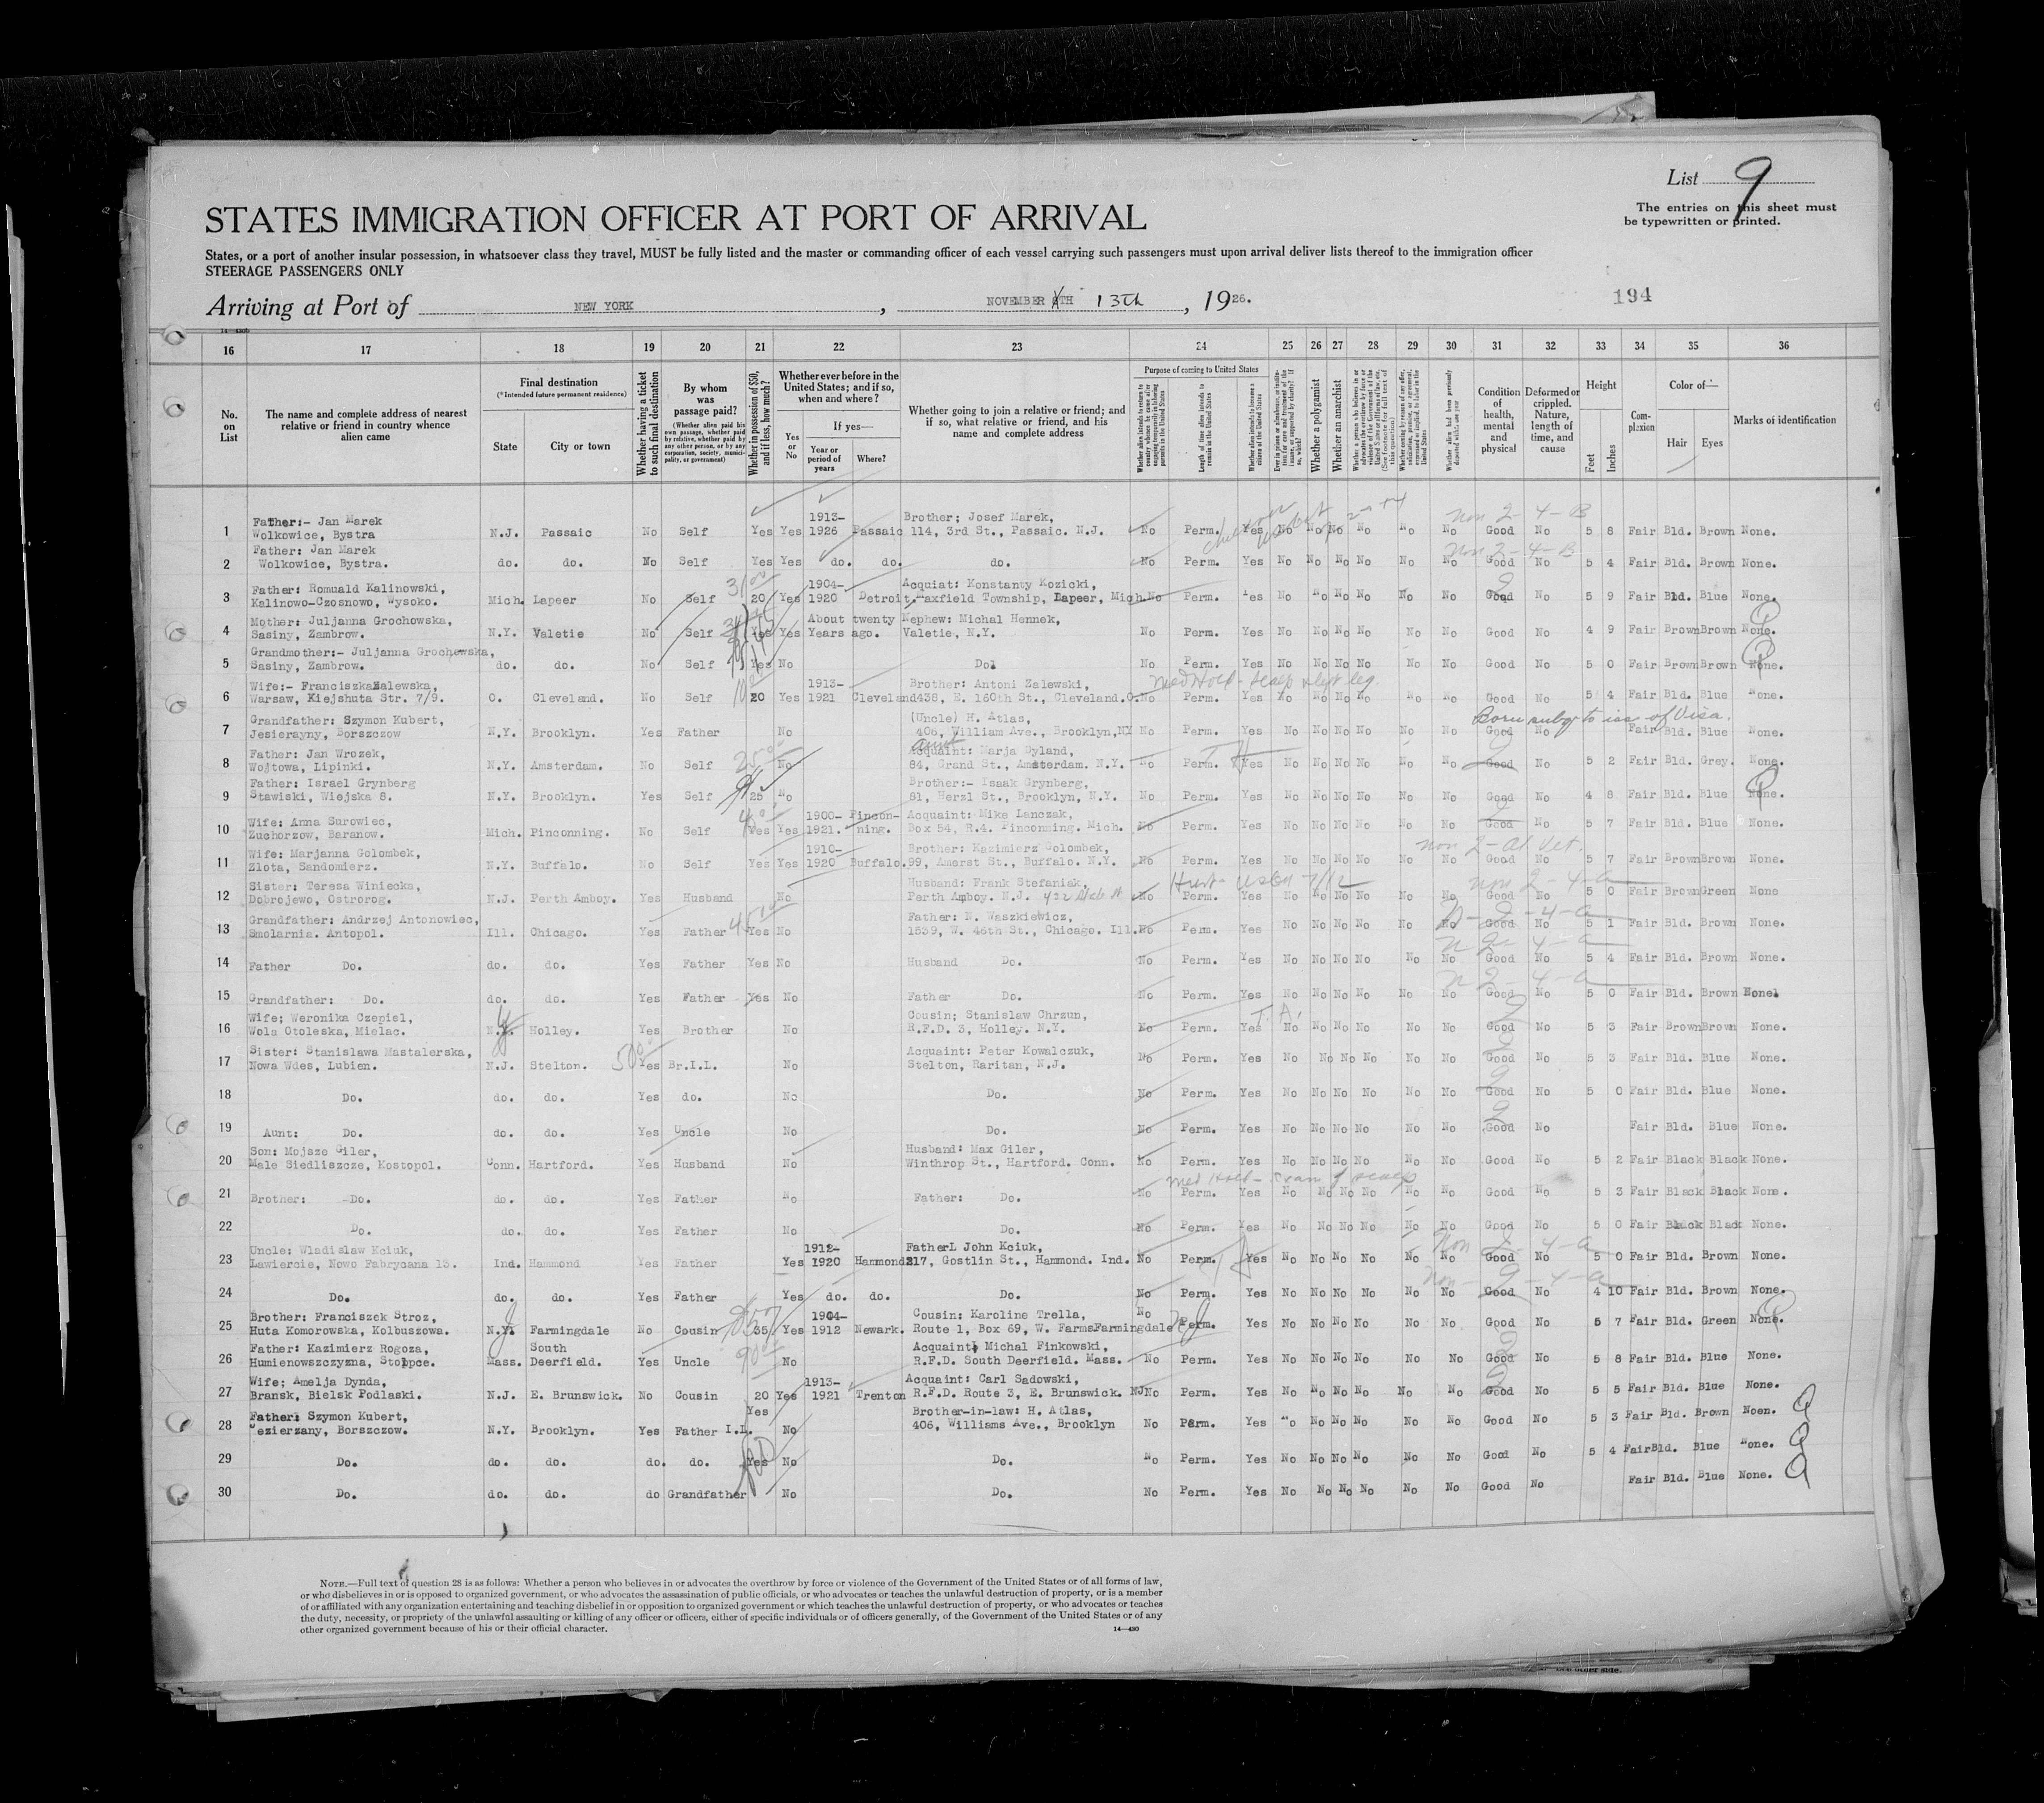 List 9
The entries on this sheet must
be typewritten or printed.
STATES IMMIGRATION OFFICER AT PORT OF ARRIVAL
States, or a port of another insular possession, in whatsoever class they travel, MUST be fully listed and the master or commanding officer of each vessel carrying such passengers must upon arrival deliver lists thereof to the immigration officer
STEERAGE PASSENGERS ONLY
Arriving at Port of NEW YORK, NOVEMBER 13th, 1926.
194
16 17 18 19 20 21 22 23 24 25 26 27 28 29 30 31 32 33 34 35 36
No. on List
The name and complete address of nearest relative or friend in country whence alien came
Final destination
(*Intended future permanent residence)
State
City or town
Whether having a ticket to such final destination
By whom was passage paid?
(Whether alien paid his own passage, whether paid by relative, whether paid by any other person, or by any corporation, society, municipality, or government)
Whether in possession of $50, and if less, how much?
Whether ever before in the United States; and if so, when and where?
Yes or No
If yes—
Year or period of years
Where?
Whether going to join a relative or friend; and if so, what relative or friend, and his name and complete address
Purpose of coming to United States
Length of time alien intends to remain in the United States
Whether alien intends to become a citizen of the United States
Whether a polygamist
Whether an anarchist
Condition of health, mental and physical
Deformed or crippled. Nature, length of time, and cause
Height
Feet
Inches
Complexion
Color of—
Hair
Eyes
Marks of identification
1 Father:- Jan Marek
Wolkowice, Bystra N.J. Passaic No Self Yes Yes 1913-1926 Passaic Brother; Josef Marek, 114, 3rd St., Passaic. N.J. No Perm. Yes No No No No No No Good No 5 8 Fair Bld. Brown None.
2 Father: Jan Marek
Wolkowice, Bystra. do. do. No Self Yes Yes do. do. do. No Perm. Yes No No No No No No Good No 5 4 Fair Bld. Brown None.
3 Father: Romuald Kalinowski,
Kalinowo-Czosnowo, Wysoko. Mich. Lapeer No Self 20 Yes 1904-1920 Detroit. Acquiat: Konstanty Kozicki, Maxfield Township, Lapeer, Mich. No Perm. Yes No No No No No No Good No 5 9 Fair Bld. Blue None.
4 Mother: Juljanna Grochowska,
Sasiny, Zambrow. N.Y. Valetie No Self Yes Yes About twenty Years ago. Nephew: Michal Hennek, Valetie, N.Y. No Perm. Yes No No No No No No Good No 4 9 Fair Brown Brown None.
5 Grandmother:- Juljanna Grochewska,
Sasiny, Zambrow. do. do. No Self Yes No Do. No Perm. Yes No No No No No No Good No 5 0 Fair Brown Brown None.
6 Wife:- Franciszka Zalewska,
Warsaw, Kiejshuta Str. 7/9. O. Cleveland. No Self 20 Yes 1913-1921 Cleveland Brother: Antoni Zalewski, 438, E. 160th St., Cleveland.O. No Perm. Yes No No No No No No Good No 5 4 Fair Bld. Blue None.
7 Grandfather: Szymon Kubert,
Jesierayny, Borszczow N.Y. Brooklyn. Yes Father No (Uncle) H. Atlas, 406, William Ave., Brooklyn,NY No Perm. Yes No No No No No No Good No Fair Bld. Blue None.
Born subq to iss of Visa.
8 Father: Jan Wrozek,
Wojtowa, Lipinki. N.Y. Amsterdam. No Self No Aunt Acquaint: Marja Dyland, 84, Grand St., Amsterdam. N.Y. No Perm. Yes No No No No No No Good No 5 2 Fair Bld. Grey. None.
9 Father: Israel Grynberg
Stawiski, Wiejska 8. N.Y. Brooklyn. Yes Self 25 No Brother:- Isaak Grynberg, 81, Herzl St., Brooklyn, N.Y. No Perm. Yes No No No No No No Good No 4 8 Fair Bld. Blue None.
10 Wife: Anna Surowiec,
Zuchorzow, Baranow. Mich. Pinconning. No Self Yes Yes 1900-1921. Pinconning. Acquaint: Mike Lanczak, Box 54, R.4. Pinconning. Mich. No Perm. Yes No No No No No No Good No 5 7 Fair Bld. Blue None.
11 Wife: Marjanna Golombek,
Zlota, Sandomierz. N.Y. Buffalo. No Self Yes Yes 1910-1920 Buffalo. Brother: Kazimierz Golombek, 99, Amerst St., Buffalo. N.Y. No Perm. Yes No No No No No No Good No 5 7 Fair Brown Brown None.
12 Sister: Teresa Winiecka,
Dobrojewo, Ostrorog. N.J. Perth Amboy. Yes Husband No Husband: Frank Stefaniak, Perth Amboy. N.J. No Perm. Yes No No No No No No Good No 5 0 Fair Brown Green None
13 Grandfather: Andrzej Antonowiec,
Smolarnia. Antopol. Ill. Chicago. Yes Father Yes No Father: N. Waszkiewicz, 1539, W. 46th St., Chicago. Ill. No Perm. Yes No No No No No No Good No 5 1 Fair Bld. Brown None.
14 Father Do. do. do. Yes Father Yes No Husband Do. No Perm. Yes No No No No No No Good No 5 4 Fair Bld. Brown None.
15 Grandfather: Do. do. do. Yes Father Yes No Father Do. No Perm. Yes No No No No No No Good No 5 0 Fair Bld. Brown None.
16 Wife; Weronika Czepiel,
Wola Otoleska, Mielac. N.Y. Holley. Yes Brother No Cousin; Stanislaw Chrzun, R.F.D. 3, Holley. N.Y. No Perm. Yes No No No No No No Good No 5 3 Fair Brown Brown None.
17 Sister: Stanislawa Mastalerska,
Nowa Wdes, Lubien. N.J. Stelton. Yes Br.I.L. No Acquaint: Peter Kowalczuk, Stelton, Raritan, N.J. No Perm. Yes No No No No No No Good No 5 3 Fair Bld. Blue None.
18 Do. do. do. Yes do. No Do. No Perm. Yes No No No No No No Good No 5 0 Fair Bld. Blue None.
19 Aunt: Do. do. do. Yes Uncle No Do. No Perm. Yes No No No No No No Good No Fair Bld. Blue None.
20 Son: Mojsze Giler,
Male Siedliszcze, Kostopol. Conn. Hartford. Yes Husband No Husband: Max Giler, Winthrop St., Hartford. Conn. No Perm. Yes No No No No No No Good No 5 2 Fair Black Black None.
21 Brother: -Do. do. do. Yes Father No Father: Do. No Perm. Yes No No No No No No Good No 5 3 Fair Black Black None.
22 Do. do. do. Yes Father No Do. No Perm. Yes No No No No No No Good No 5 0 Fair Black Black None.
23 Uncle: Wladislaw Kciuk,
Lawiercie, Nowo Fabrycana 13. Ind. Hammond Yes Father Yes 1912-1920 Hammond FatherL John Kciuk, 217, Gostlin St., Hammond. Ind. No Perm. Yes No No No No No No Good No 5 0 Fair Bld. Brown None.
24 Do. do. do. Yes Father Yes do. do. Do. No Perm. Yes No No No No No No Good No 4 10 Fair Bld. Brown None.
25 Brother: Franciszek Stroz,
Huta Komorowska, Kolbuszowa. N.Y. Farmingdale No Cousin 35 Yes 1904-1912 Newark. Cousin: Karoline Trella, Route 1, Box 69, W. Farms Farmingdale No Perm. Yes No No No No No No Good No 5 7 Fair Bld. Green None.
26 Father: Kazimierz Rogoza,
Humienowszczyzna, Stolpce. Mass. South Deerfield. Yes Uncle No Acquaint: Michal Finkowski, R.F.D. South Deerfield. Mass. No Perm. Yes No No No No No No Good No 5 8 Fair Bld. Blue None.
27 Wife; Amelja Dynda,
Bransk, Bielsk Podlaski. N.J. E. Brunswick. No Cousin 20 Yes 1913-1921 Trenton Acquaint: Carl Sadowski, R.F.D. Route 3, E. Brunswick. NJ No Perm. Yes No No No No No No Good No 5 5 Fair Bld. Blue None.
28 Father: Szymon Kubert,
Jezierzany, Borszczow. N.Y. Brooklyn. Yes Father I.L. Yes No Brother-in-law: H. Atlas, 406, Williams Ave., Brooklyn No Perm. Yes No No No No No No Good No 5 3 Fair Bld. Brown Noen.
29 Do. do. do. do. do. Yes No Do. No Perm. Yes No No No No No No Good No 5 4 Fair Bld. Blue None.
30 Do. do. do. do Grandfather No Do. No Perm. Yes No No No No No No Good No Fair Bld. Blue None.
NOTE.—Full text of question 28 is as follows: Whether a person who believes in or advocates the overthrow by force or violence of the Government of the United States or of all forms of law,
or who disbelieves in or is opposed to organized government, or who advocates the assassination of public officials, or who advocates or teaches the unlawful destruction of property, or is a member
of or affiliated with any organization entertaining and teaching disbelief in or opposition to organized government or which teaches the unlawful destruction of property, or who advocates or teaches
the duty, necessity, or propriety of the unlawful assaulting or killing of any officer or officers, either of specific individuals or of officers generally, of the Government of the United States or of any
other organized government because of his or their official character.
14—430